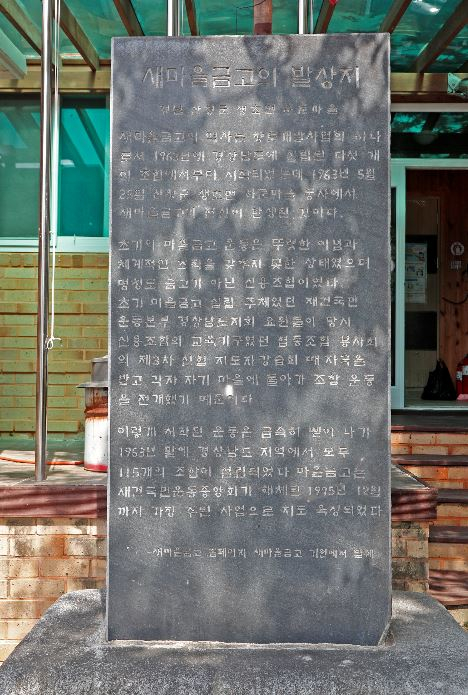 새마을금고의 발상지
경남 산청군 생초면 하둔마을
새마을금고의 역사는 향토개발사업의 하나
로서 1963년에 경상남도에 설립된 다섯 개
의 조합에서부터 시작되었는데 1963년 5월
25일 산청군 생초면 하둔마을 동사에서
새마을금고의 전신이 발생된 것이다.
초기의 마을금고 운동은 뚜렷한 이념과
체계적인 조직을 갖추지 못한 상태였으며
명칭도 금고가 아닌 신용조합이었다.
초기 마을금고 설립 주체였던 재건국민
운동본부 경상남도지회 요원들이 당시
신용조합의 교육기구였던 협동조합 봉사회
의 제3차 신협 지도자강습회 때 자극을
받고 각자 자기 마을에 돌아가 조합 운동
을 전개했기 때문이다
이렇게 시작된 운동은 급속히 뻗어 나가
1963년 말에 경상남도 지역에서 모두
115개의 조합이 설립되었다 마을금고는
재건국민운동중앙회가 해체된 1975년 12월
까지 가장 주된 사업으로 지도 육성되었다
-새마을금고 홈페이지 새마을금고 기원에서 발췌